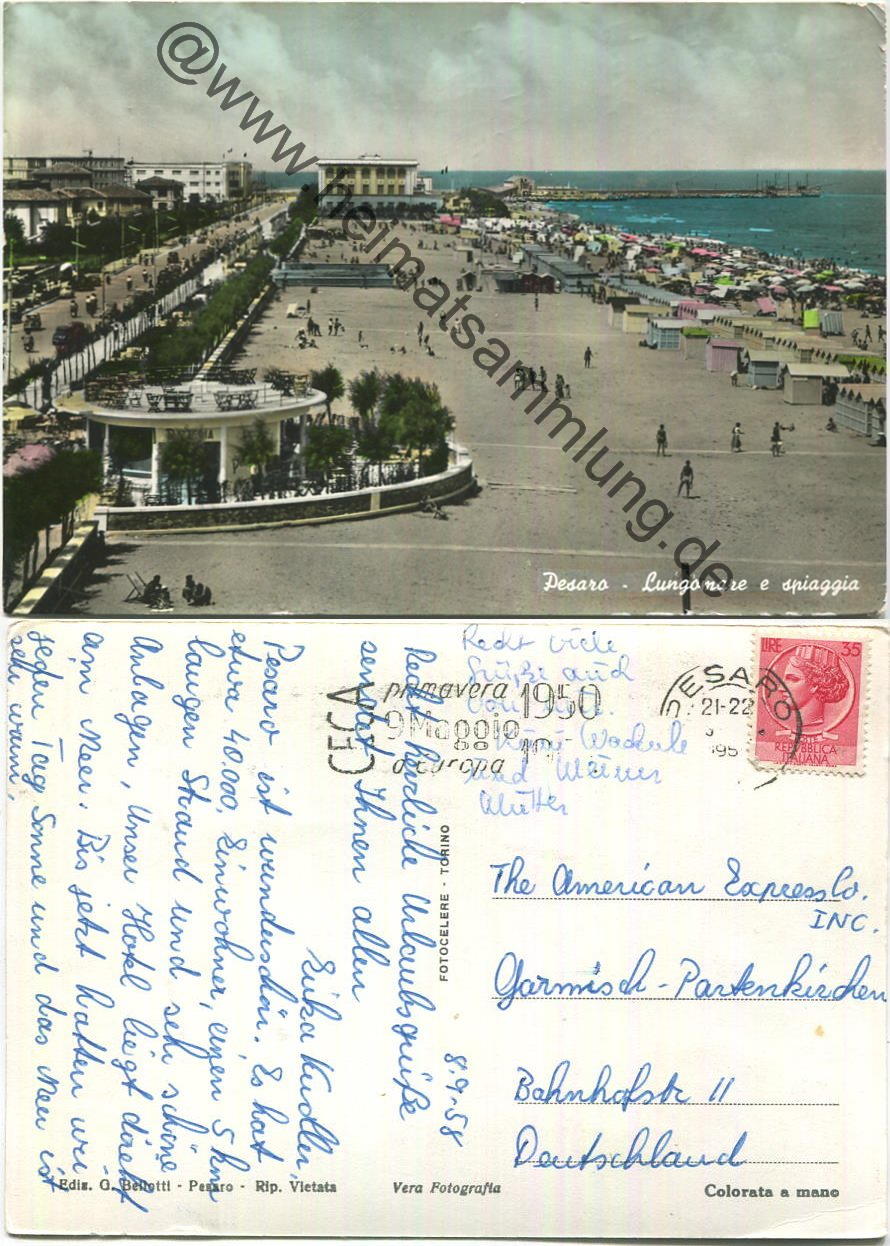 @www.heimatsammlung.de
Pesaro - Lungomare e spiaggia
8.9.58
Recht herzliche Urlaubsgrüße
sendet Ihnen allen
Erika Kudller,
Pesaro ist wunderschön. Es hat
etwa 40.000, Einwohner, einen 5 km
langen Strand und sehr schöne
Anlagen, Unser Hotel liegt direkt
am Meer. Bis jetzt hatten wir
jeden Tag Sonne und das Meer ist
sehr warm.
Recht viele
Grüße auch
von
und Meiner
Mutter
CECA
primavera 1950
9 Maggio
d'Europa
PESARO
21-22
LIRE 35
REPUBBLICA
ITALIANA
FOTOCELERE - TORINO
The American Express Co.
INC.
Garmisch-Partenkirchen
Bahnhofstr 11
Deutschland
Ediz. G. Bellotti - Pesaro - Rip. Vietata
Vera Fotografia
Colorata a mano